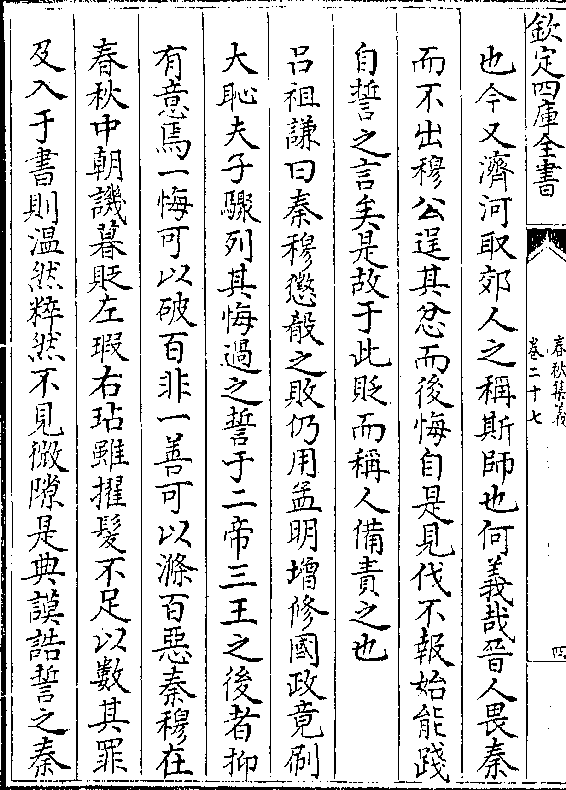 欽定四庫全書
春秋集義
卷二十七
四
也今又濟河取郊人之稱斯師也何義哉晉人畏秦
而不出穆公逞其忿而後悔自是見伐不報始能踐
自誓之言矣是故于此貶而稱人備責之也
吕祖謙曰秦穆懲殽之敗仍用孟明增修國政竟刷
大恥夫子驟列其悔過之誓于二帝三王之後者抑
有意焉一悔可以破百非一善可以滌百惡秦穆在
春秋中朝譏暮貶左瑕右玷雖擢髮不足以數其罪
及入于書則溫然粹然不見微隙是典謨誥誓之秦